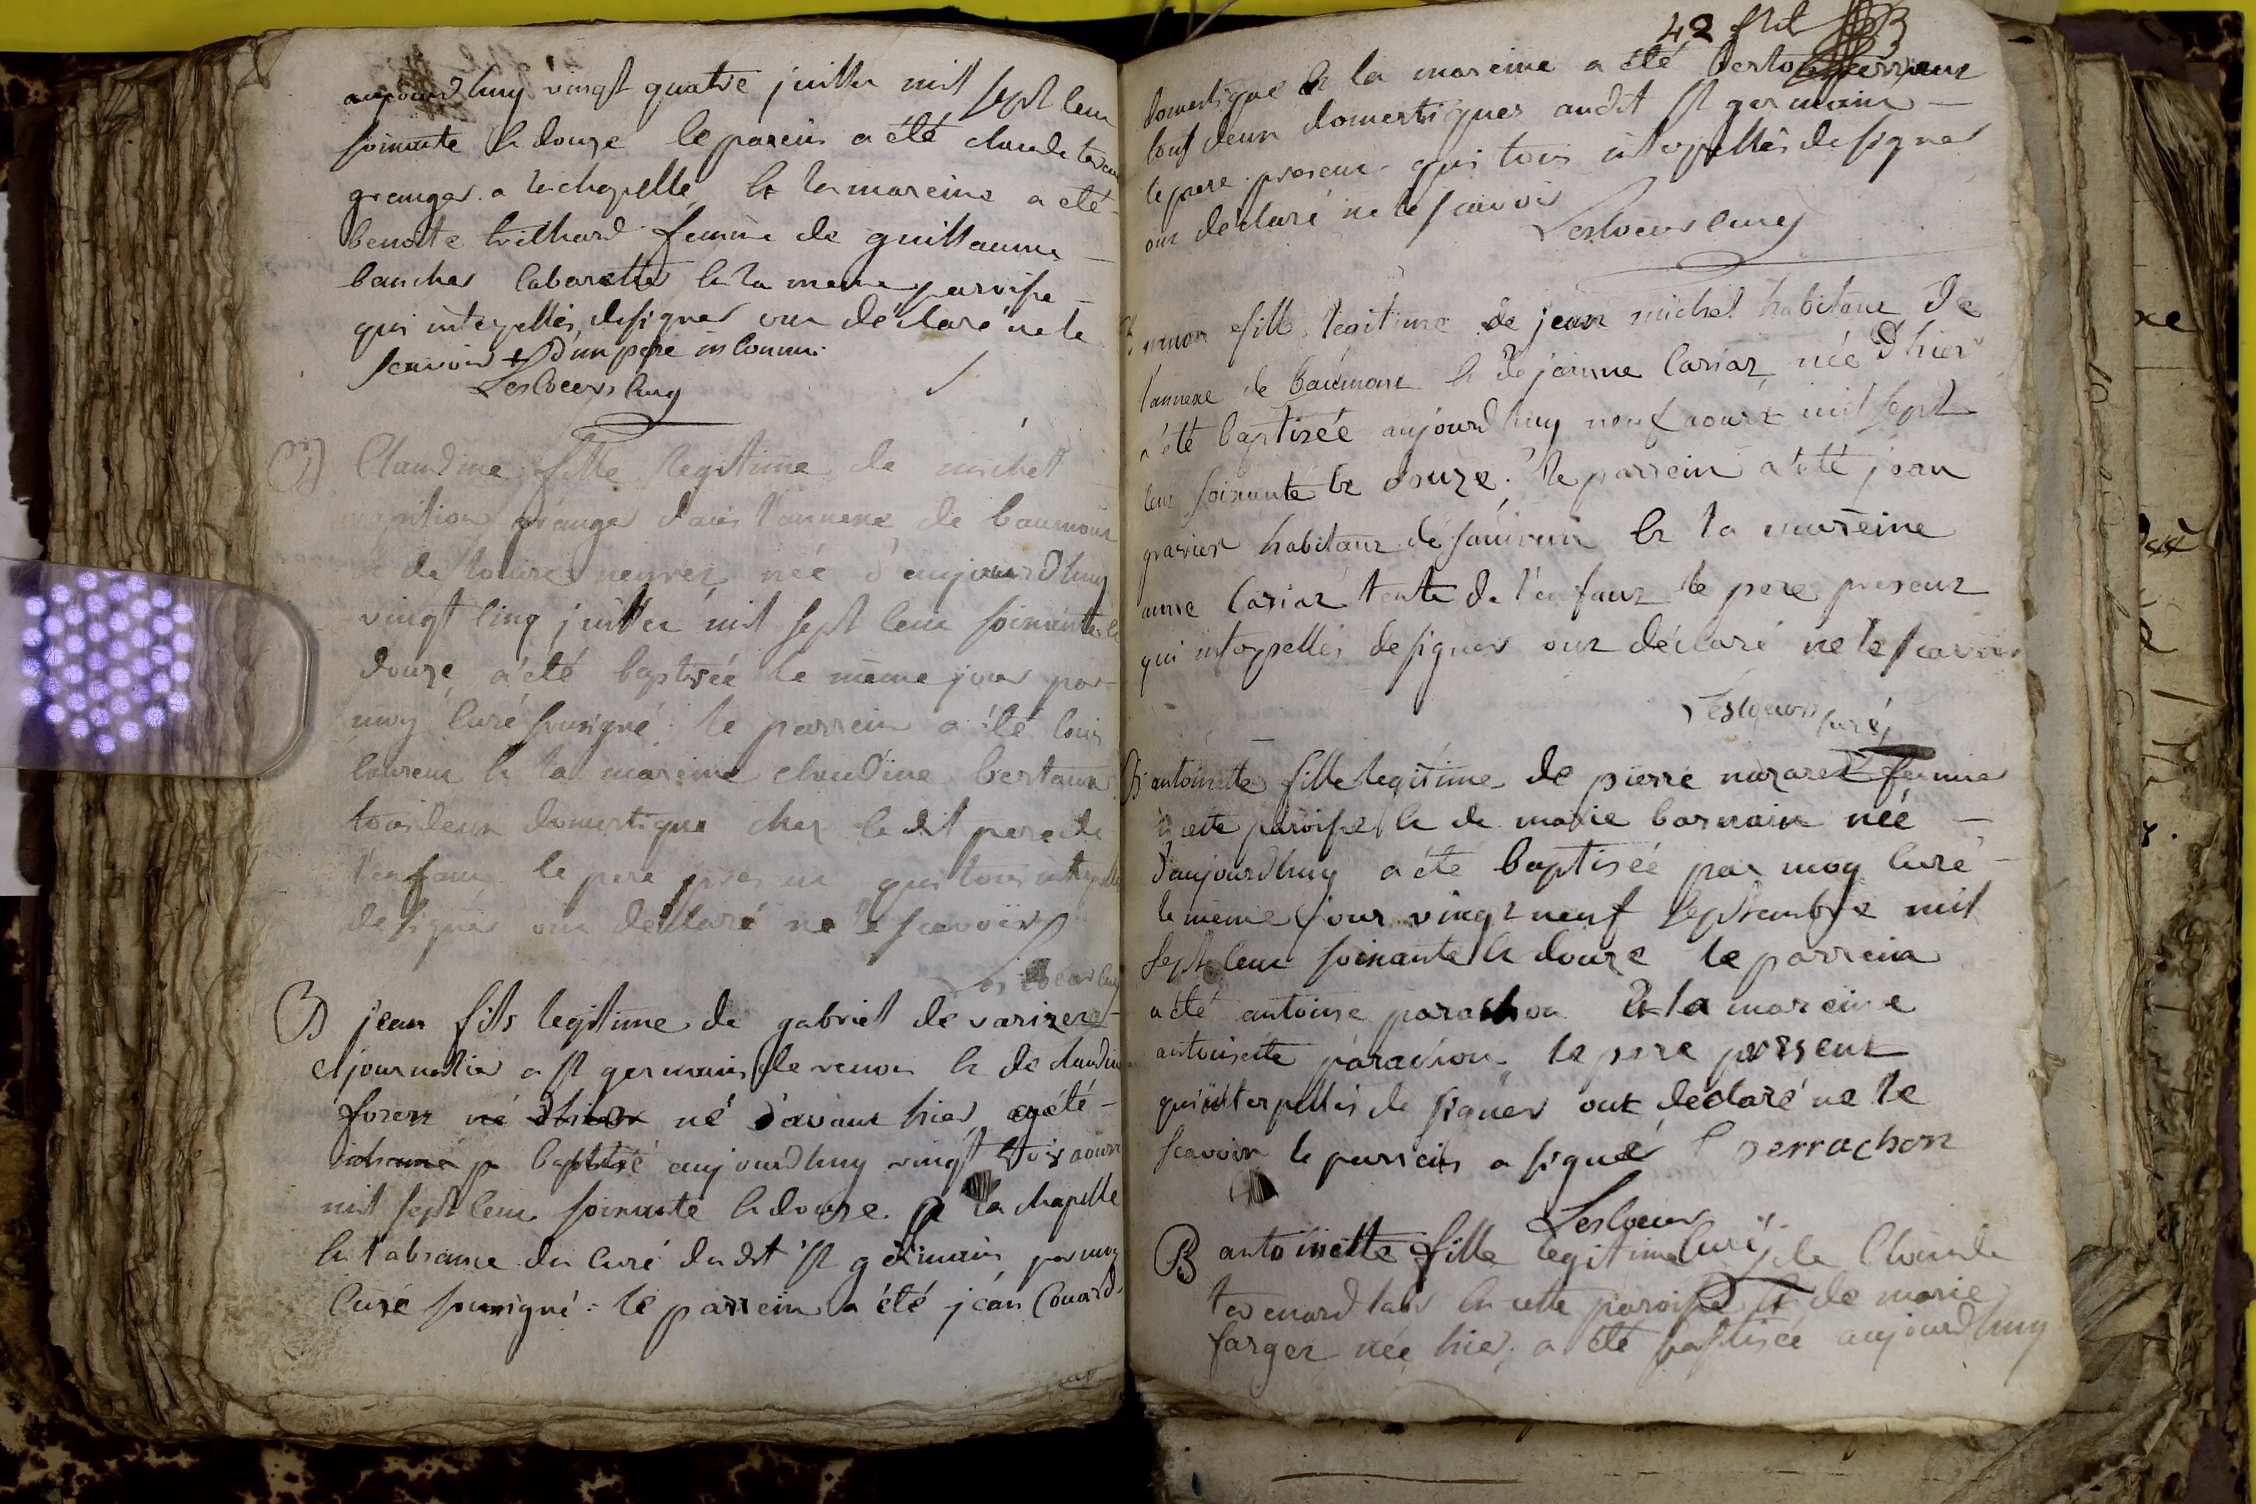 aujourdhuy vingt quatre juillet mil sept cent
soixante & douze le parein a été claude
granger a lachapelle & la mareine a été
benoite trilhard femme de guillaume
baucher cabaretier en la meme paroisse
qui interpellés designer ont déclaré ne le
scavoir + d'un pere inconnu.
Lescoeurs curé
B Claudine fille legitime de michel
granger dans l'annexe de baumont
& de née d'aujourdhuy
vingt cinq juillet mil sept cent soixante &
douze a été baptisée le même jour par
moy curé sousigné : le parrein a été louis
laurent & la mareine claudine bertaux
tous deux domestique chez le dit pere de
l'enfant le pere present qui tous interpellés
designer ont déclaré ne le scavoir
Lescoeurs curé
B jean fils legitime de gabriel de varizer
journalier a st germain de renon & de claudine
foren né d'hier né d'avant hier a été
baptisé aujourdhuy vingt trois aoust
mil sept cent soixante & douze a la chapelle
en l'absance du curé dudit st germain par moy
curé sousigné : le parrein a été jean Couard
42
domestique & la mareine a été
tous deux domestiques audit st germain
le pere present qui tous interpellés designer
ont déclaré ne le scavoir
Lescoeurs curé
B fille legitime de jean michel habitant de
l'annexe de baumont & de jeanne Cariaz née d'hier
a été baptisée aujourdhuy neuf aoust mil sept
cent soixante & douze. le parrein a été jean
gravier habitant de & la mareine
anne Cariaz tente de l'enfant le pere present
qui interpellés designer ont déclaré ne le scavoir
Lescoeurs curé
B antoinette fille legitime de pierre nazaret fermier
en cette paroisse & de marie barnain née
d'aujourdhuy a été baptisée par moy curé
le même jour vingt neuf septembre mil
sept cent soixante & douze le parrein
a été antoine parachon & la mareine
antoinette parachon le pere present
qui interpellés de signer ont déclaré ne le
scavoir le parrein a signé perrachon
Lescoeurs curé
B antoinette fille legitime de Claude
tavenard en cette paroisse & de marie
farger née hier, a été baptisée aujourdhuy